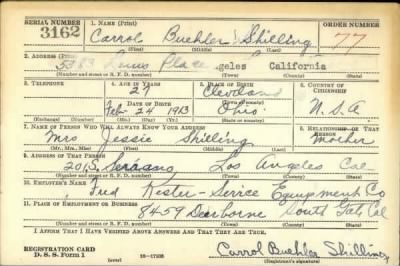 SERIAL NUMBER 1. NAME (Print) ORDER NUMBER
3162 Carrol Buehler Shilling 77
(First) (Middle) (Last)
2. ADDRESS (Print)
Place geles California
(Number and street or R. F. D. number) (Town) (County) (State)
3. TELEPHONE 4. AGE IN YEARS 5. PLACE OF BIRTH 6. COUNTRY OF CITIZENSHIP
27 Cleveland
(Town or county)
DATE OF BIRTH
Feb 24 1913 Ohio U.S.A.
(Exchange) (Number) (Mo.) (Day) (Yr.) (State or country)
7. NAME OF PERSON WHO WILL ALWAYS KNOW YOUR ADDRESS 8. RELATIONSHIP OF THAT PERSON
Mrs Jessie Shilling Mother
(Mr., Mrs., Miss) (First) (Middle) (Last)
9. ADDRESS OF THAT PERSON
Los Angeles Cal
(Number and street or R. F. D. number) (Town) (County) (State)
10. EMPLOYER'S NAME
Fred Equipment Co
11. PLACE OF EMPLOYMENT OR BUSINESS
8459 Dearborne South Gate Cal
(Number and street or R. F. D. number) (Town) (County) (State)
I AFFIRM THAT I HAVE VERIFIED ABOVE ANSWERS AND THAT THEY ARE TRUE.
REGISTRATION CARD
D. S. S. Form 1 (over) Carrol Buehler Shilling
(Registrant's signature)